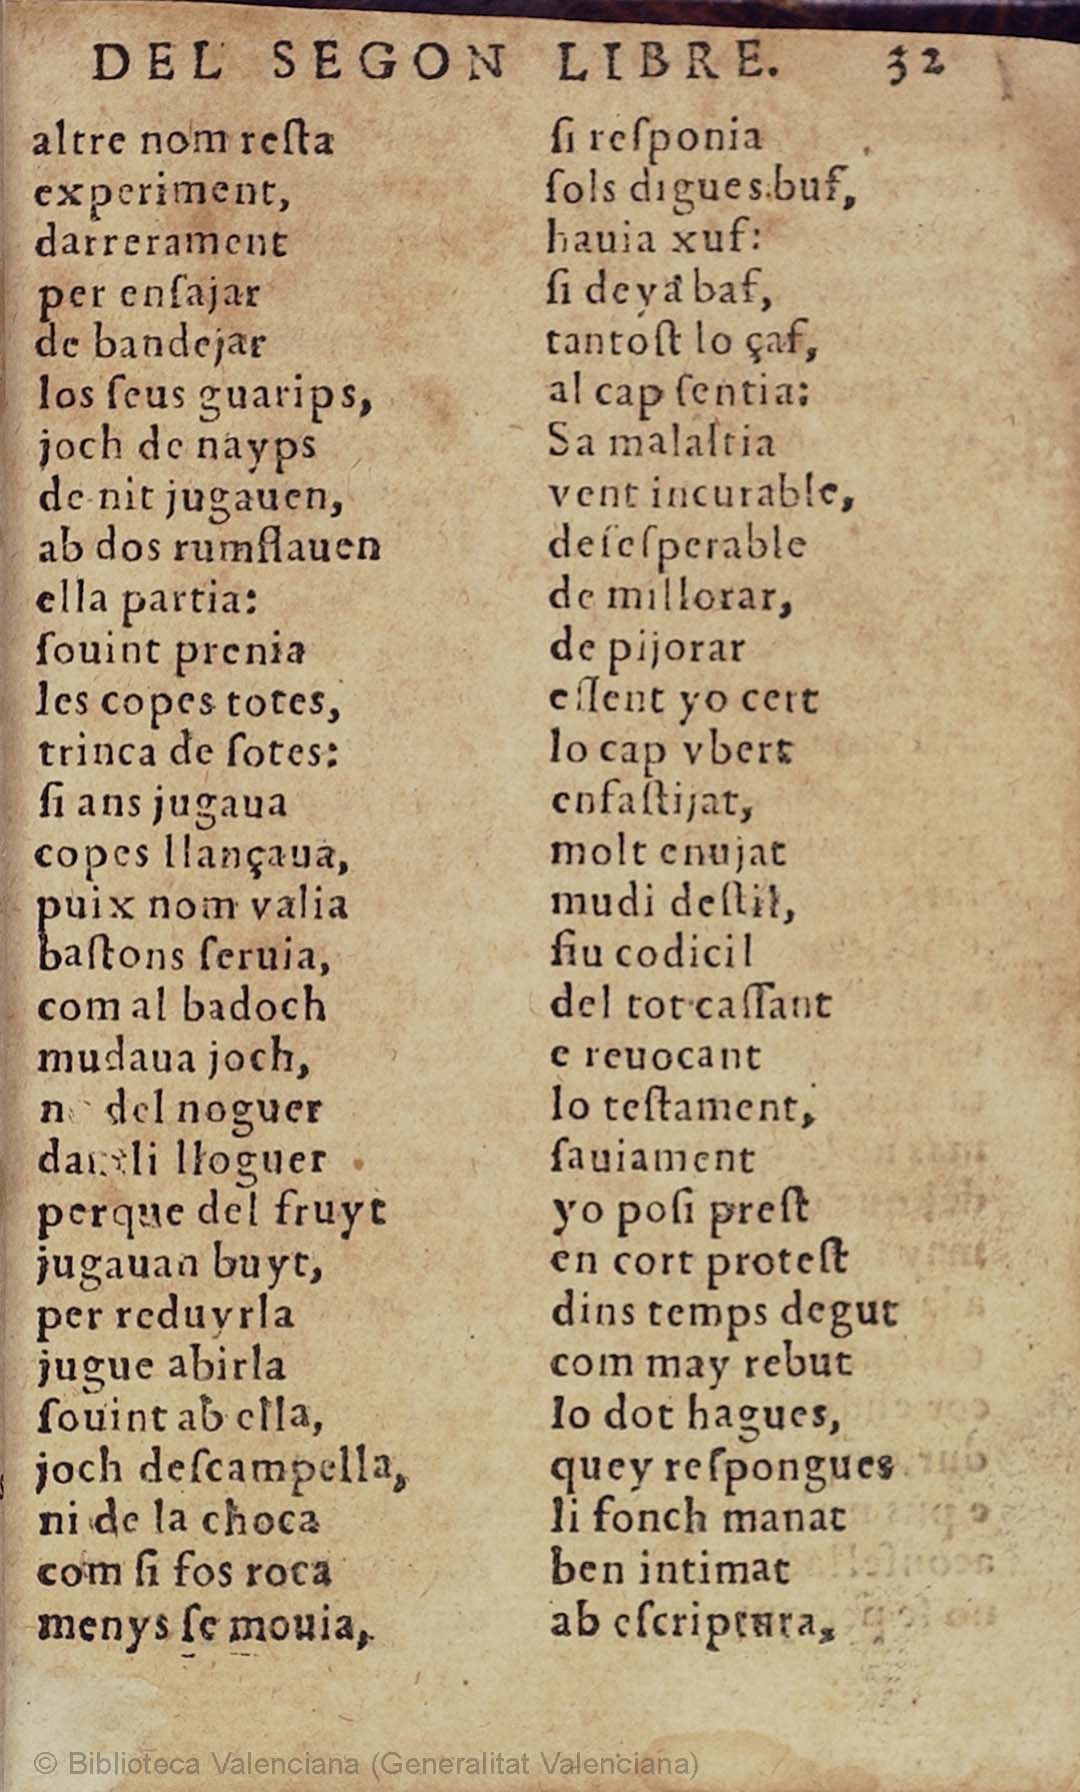 DEL SEGON LIBRE. 32
altre nom reſta
experiment,
darrerament
per enſajar
de bandejar
los ſeus guarips,
joch de nayps
de nit jugauen,
ab dos rumflauen
ella partia:
ſouint prenia
les copes totes,
trinca de ſotes:
ſi ans jugaua
copes llançaua,
puix nom valia
baſtons ſeruia,
com al badoch
mudaua joch,
del noguer
li lloguer
perque del fruyt
jugauan buyt,
per reduyrla
jugue abirla
ſouint ab ella,
joch deſcampella,
ni de la choca
com ſi fos roca
menys ſe mouia,
ſi reſponia
ſols digues buf,
hauia xuf:
ſi deya baf,
tantoſt lo çaf,
al cap ſentia:
Sa malaltia
vent incurable,
deſeſperable
de millorar,
de pijorar
eſſent yo cert
lo cap vbert
enfaſtijat,
molt enujat
mudi deſtil,
fiu codicil
del tot caſſant
e reuocant
lo teſtament,
ſauiament
yo poſi preſt
en cort proteſt
dins temps degut
com may rebut
lo dot hagues,
quey reſpongues
li fonch manat
ben intimat
ab eſcriptura,
© Biblioteca Valenciana (Generalitat Valenciana)